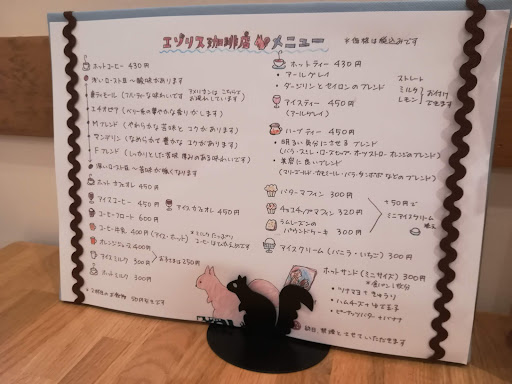 エゾリス珈琲店 メニュー
*価格は税込みです
ホットコーヒー 430円
浅いロースト豆〜酸味があります
東ティモール(フルーティな味わいです)
アメリカンはこちらでお淹れしています
エチオピア(ベリー系の華やかな香りがします)
Mブレンド(やわらかな苦味とコクがあります)
マンデリン(なめらかで豊かなコクがあります)
Fブレンド(しっかりとした苦味 厚みのある味わいです)
深いロースト豆〜苦味が強くなります
ホットカフェオレ 450円
アイスコーヒー 450円
アイスカフェオレ 450円
コーヒーフロート 600円
コーヒー牛乳 400円(アイス・ホット)
*ミルクたっぷり コーヒーはひかえめです
オレンジジュース 400円
アイスミルク 300円
お子さまは250円
ホットミルク 300円
*2杯目のお飲物 50円引きです
ホットティー 430円
・アールグレイ
・ダージリンとセイロンのブレンド
ストレート
ミルク
レモン
お付けできます
アイスティー 450円
(アールグレイ)
ハーブティー 450円
・明るい気分にさせるブレンド
・美容に良いブレンド
バターマフィン 300円
チョコチップマフィン 320円
ラムレーズンのパウンドケーキ 300円
+50円でミニアイスクリーム
アイスクリーム(バニラ・いちご) 300円
ホットサンド(ミニサイズ) 300円
*食パン1枚分
・ツナマヨ+きゅうり
・ハムチーズ+ゆで玉子
・ピーナッツバター+バナナ
終日、禁煙とさせていただきます